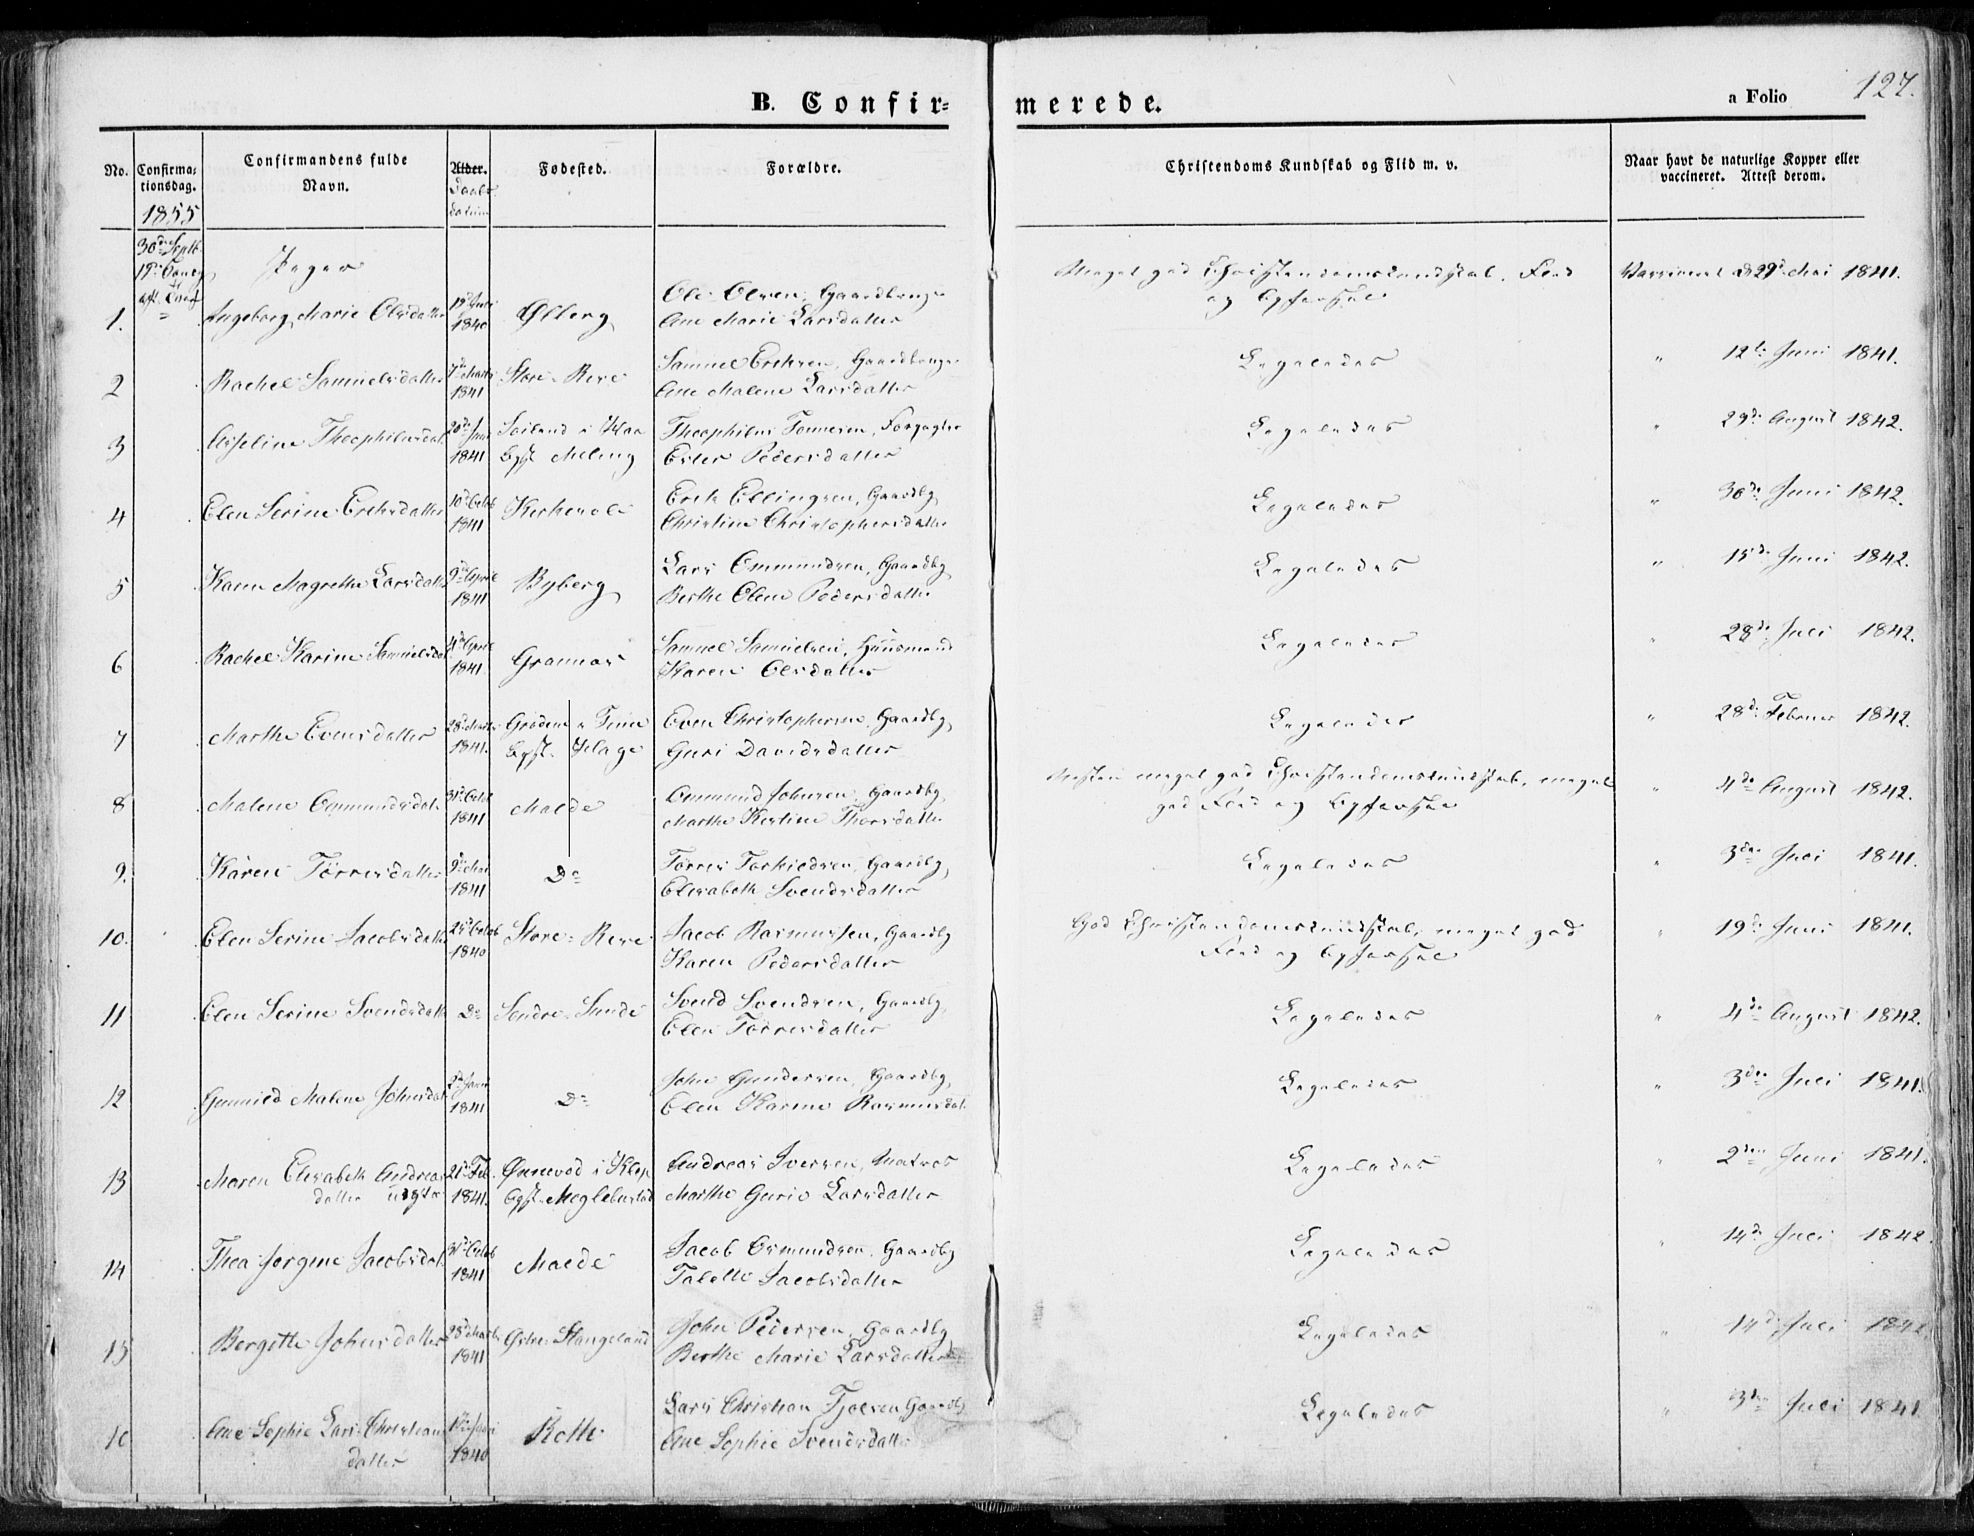 B. Confir=
merede.
a Folio
127.
No.
Confirma=
tionsdag.
1855
Confirmandens fulde
Navn.
Alder.
Daabs
datum
Fødested.
Forældre.
Christendoms Kundskab og Flid m. v.
Naar havt de naturlige Kopper eller
vaccineret. Attest derom.
30de Septb.
Piger
1. Ingeborg Marie Olsdatter 1840 Ølberg
Ole Olsen, Gaardbruger
Ane Marie Larsdatter
Meget god Christendomskundskab, Flid
og Opførsel
Vaccineret d 29de Mai 1841.
2 Rachel Samuelsdatter 7de Marts 1841 Store-Reve
Samuel Eriksen, Gaardbruger
Ane Malene Larsdatter
Ligeledes
" 12te Juni 1841.
3 Theophilusdat. 1841
Opf. Meling
Theophilus Tønnesen,
Ester Pedersdatter
Ligeledes
" 29de August 1842.
4 Elen Serine Eriksdatter 10de Octob 1841 Kirkevole
Erik Ellingsen, Gaardbg.
Christine Christophersdatter
Ligeledes
" 30de Juni 1842.
5 Karen Magrethe Larsdatt. 9de April 1841 Byberg
Lars Ommundsen, Gaardbg.
Berthe Olene Pedersdatter
Ligeledes
" 15de Juni 1842.
6 Rachel Karine Samuelsdat 4de April 1841 Grannæs
Samuel Samuelsen, Huusmand
Karen Olsdatter
Ligeledes
" 28de Juli 1842.
7 Marthe Evensdatter 28de Marts 1841. Grødem
Opf.
Even Christophersen, Gaardbg.
Guri Davidsdatter
Ligeledes
" 28de Februar 1842.
8 Malene Ommundsdat. 31te Octob 1841 Malde
Ommund Johnsen, Gaardbg.
Marthe Kirstine Thorsdatter
Næsten meget god Christendomskundskab, meget
god Flid og Opførsel
" 4de August 1842.
9. Karen Tørresdatter 9de Mai 1841 Do
Tørres Torkildsen, Gaardbg.
Elisabeth Svendsdatter
Ligeledes
" 3die Juli 1841.
10. Elen Serine Jacobsdatt. 25de Octob 1840 Store-Reve
Jacob Rasmussen, Gaardbg
Karen Pedersdatter
God Christendomskundskab, meget god
Flid og Opførsel
" 19de Juni 1841.
11 Elen Serine Svendsdatt. Do Søndre-Sunde
Svend Svendsen, Gaardbg.
Elen Tørresdatter
Ligeledes
" 4de August 1842.
12 Gunnild Malene Johnsdat. 1841 Do
John Gundersen, Gaardbg.
Elen Karine Rasmusdat.
Ligeledes
" 3die Juli 1841.
13 Maren Elisabeth Andreas
datter 21de Feb. 1841. i Klep
Opf.
Andreas Iversen, Matros
Marthe Gurie Larsdatter
Ligeledes
" 2den Juni 1841.
14 Thea Jørgine Jacobsdat. 31te Octob 1841 Malde
Jacob Osmundsen, Gaardbg
Talette Jacobsdatter
Ligeledes
" 14de Juli 1842.
15 Bergitte Johnsdatter 28de Marts 1841 Østre Stangeland
John Pedersen, Gaardbg.
Berthe Marie Larsdatter
Ligeledes
" 14de Juli 1842.
16 Ane Sophie Lars Christians
datter 1840 Kolle
Lars Christian Tjølsen Gaardbg
Ane Sophie Svendsdatter
Ligeledes
" 3die Juli 1841.